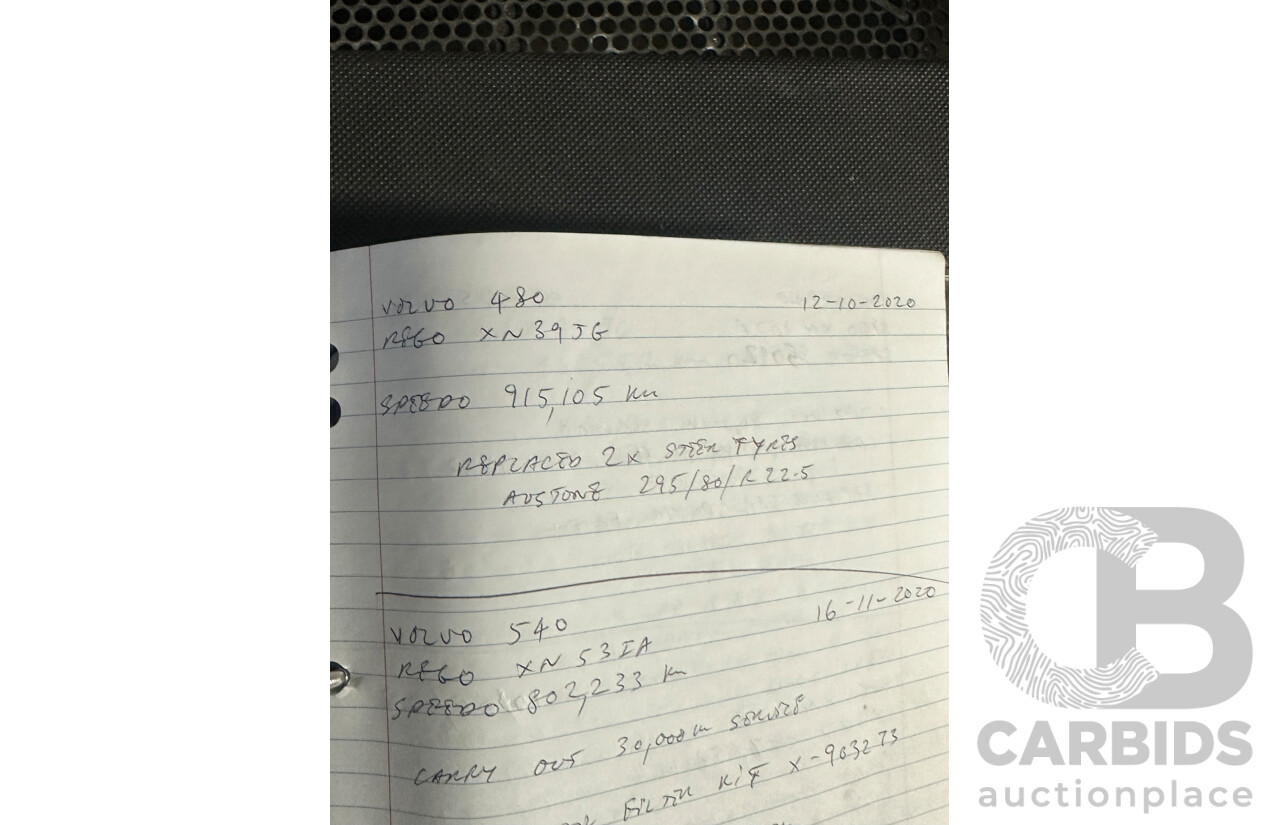 VOLVO 480 12-10-2020
REGO XN39JG
SPEEDO 915,105 Km
REPLACED 2X STEER TYRES
AUSTONE 295/80/R22.5
VOLVO 540 16-11-2020
REGO XN53IA
SPEEDO 802,233 Km
CARRY OUT 30,000 Km SERVICE
FILTER KIT X-903273
CB
CARBIDS
auctionplace